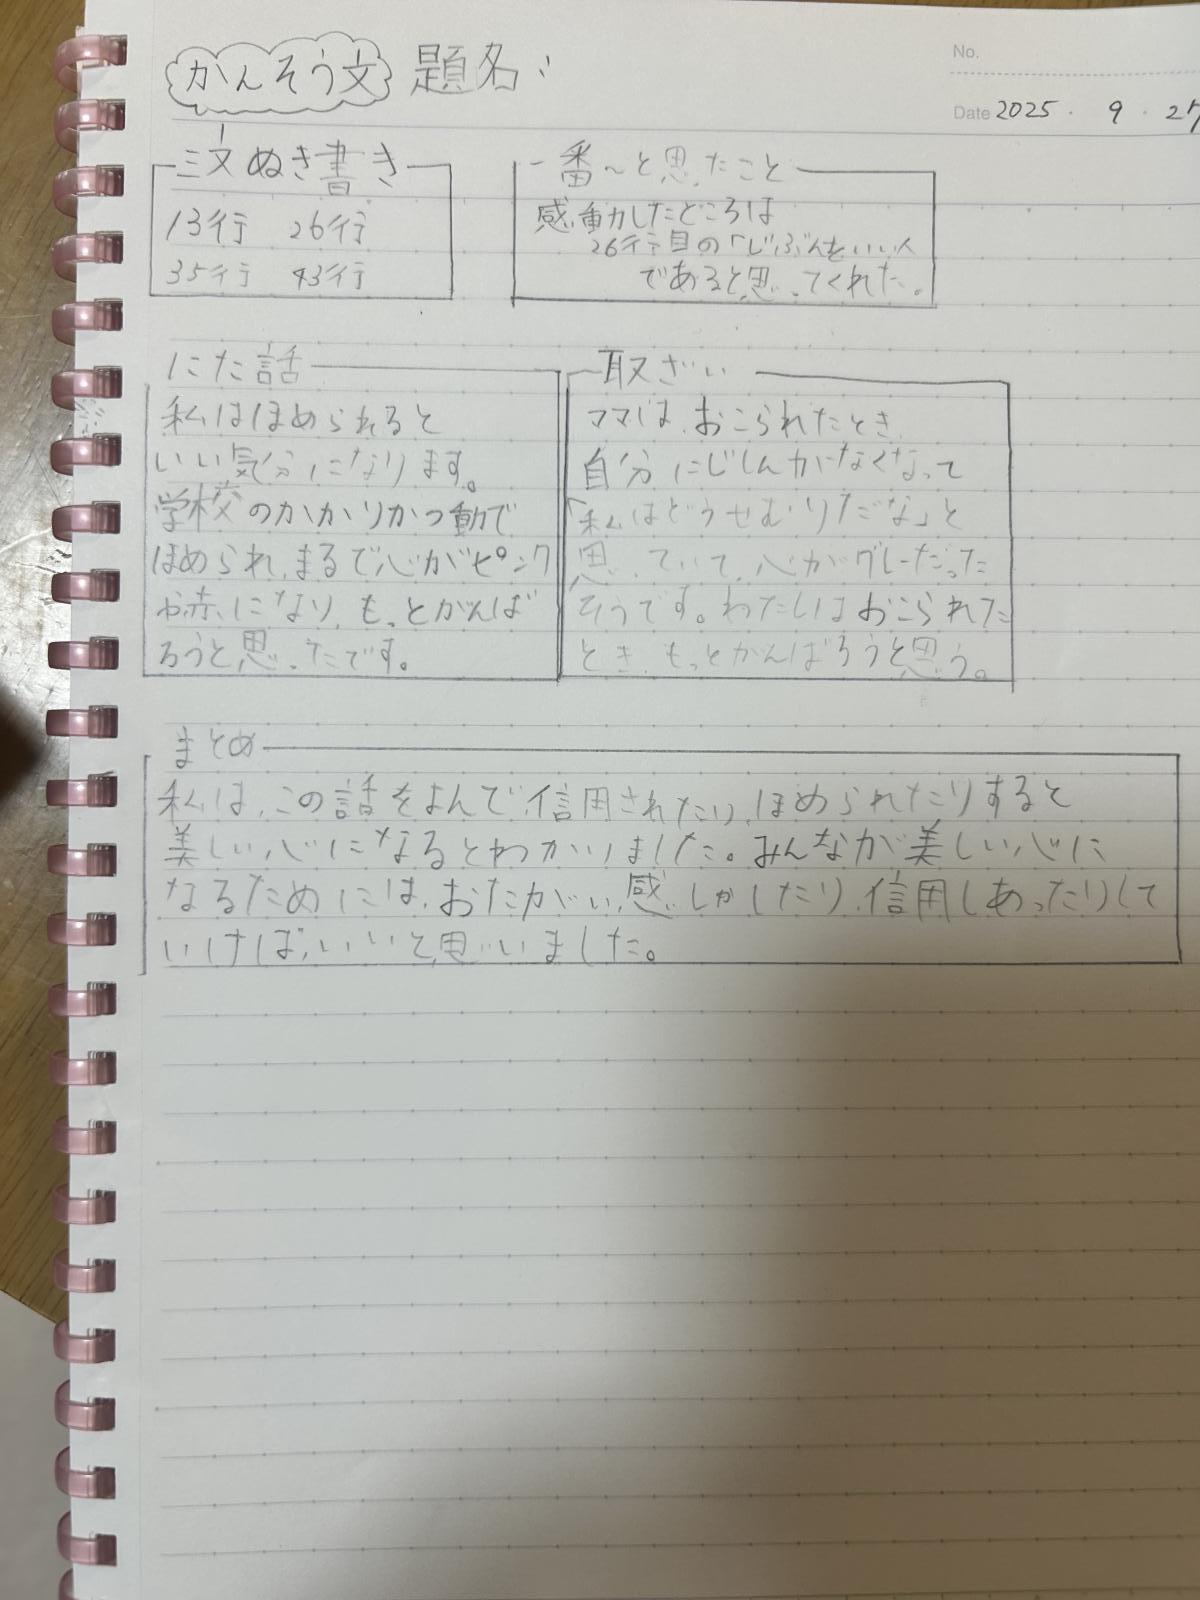 かんそう文 題名:
No.
Date 2025・9・27
三文ぬき書き
13行 26行
35行 43行
一番~と思ったこと
感動したところは
26行目の「じぶんをいい人
であると思ってくれた。
にた話
私はほめられると
いい気分になります。
学校のかかりかつ動で
ほめられ、まるで心がピンク
や赤になり、もっとがんば
ろうと思ったです。
取ざい
ママは、おこられたとき、
自分にじしんがなくなって
「私はどうせむりだな」と
思っていて、心がグレーだった
そうです。わたしはおこられた
とき、もっとがんばろうと思う。
まとめ
私は、この話をよんで、信用されたり、ほめられたりすると
美しい心になるとわかりました。みんなが美しい心に
なるためには、おたがい、感しゃしたり、信用しあったりして
いけば、いいと思いました。